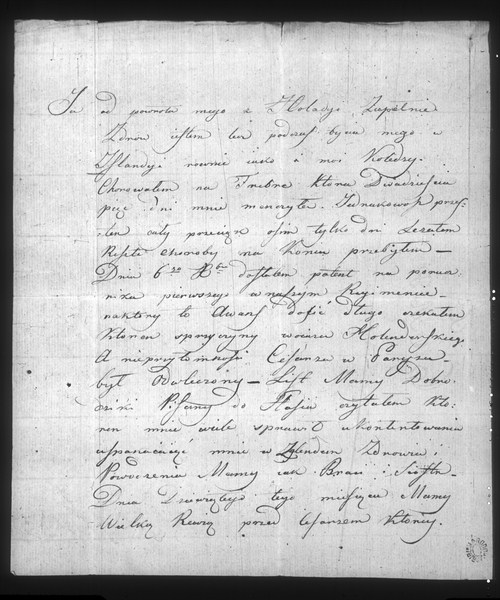 Ja od powrotu mego z Holadyi Zupełnie
Zdrow iestem lecz podczas bycia mego w
Zflandyi rownie iako i moi Koledzy.
Chorowałem na Febre Ktora Dwadziescia
pięć dni mnie
ten cały przeciąg ośm tylko dni Lezałem
Resztę choroby na Koniu przebyłem —
Dnia 6go dostałem patent na porucz
nika pierwszego w naszym Regimencie
naktory to Awans dosić długo czekałem
Ktoren sprzyczyny woiazu Holenderskiego
A nieprzytomności Cesarza w Paryżu
był Odwleczony — List Mamy Dobro
dziki Pisany do Stasia czytałem Kto
ren mnie wiele sprawił ukontentowania
mnie w Zdrowiu i
Powodzenia Mamy iak Braci i Siostr —
Dnia Dziewiątego tego miesiąca Mamy
Wielką Rewię przed Cesarzem Ktorey